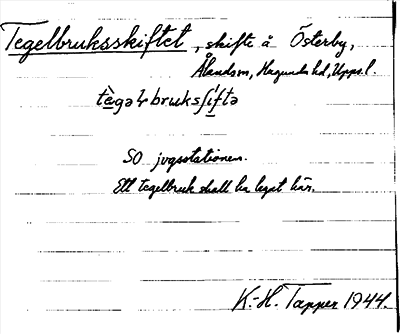 Tegelbruksskiftet, skifte å Österby,
Ålands sn, Hagunda hd, Upps. l.
tègəɫbruksʃíftə
SO jvgsstationen.
Ett tegelbruk skall ha legat här.
K.-H. Tapper 1944.